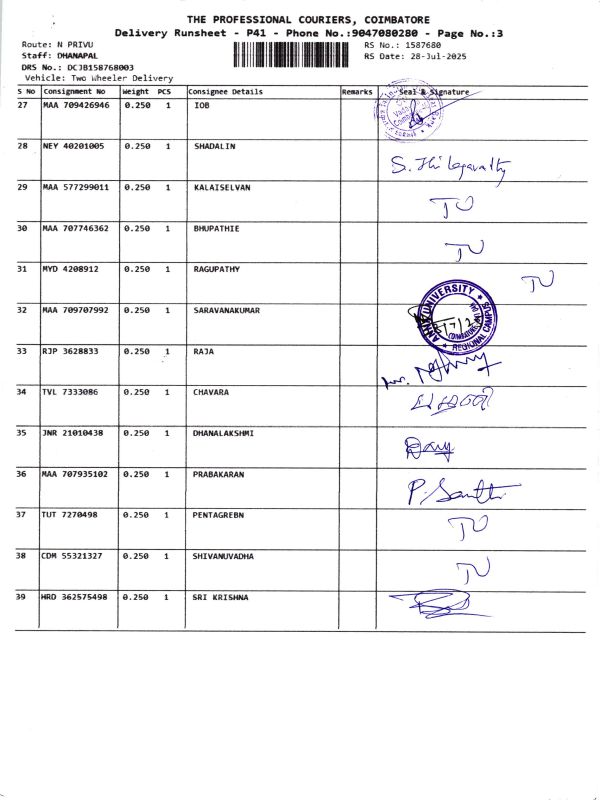 THE PROFESSIONAL COURIERS, COIMBATORE
Delivery Runsheet - P41 - Phone No.:9047080280 - Page No.:3
Route: N PRIVU RS No.: 1587680
Staff: DHANAPAL RS Date: 28-Jul-2025
DRS No.: DCJB158768003
Vehicle: Two Wheeler Delivery
S No Consignment No Weight PCS Consignee Details Remarks Seal & Signature
27 MAA 709426946 0.250 1 IOB
28 NEY 40201005 0.250 1 SHADALIN
29 MAA 577299011 0.250 1 KALAISELVAN TU
30 MAA 707746362 0.250 1 BHUPATHIE TU
31 MYD 4208912 0.250 1 RAGUPATHY TU
32 MAA 709707992 0.250 1 SARAVANAKUMAR UNIVERSITY REGIONAL CAMPUS
33 RJP 3628833 0.250 1 RAJA
34 TVL 7333086 0.250 1 CHAVARA
35 JNR 21010438 0.250 1 DHANALAKSHMI
36 MAA 707935102 0.250 1 PRABAKARAN
37 TUT 7270498 0.250 1 PENTAGREBN TU
38 CDM 55321327 0.250 1 SHIVANUVADHA TU
39 HRD 362575498 0.250 1 SRI KRISHNA